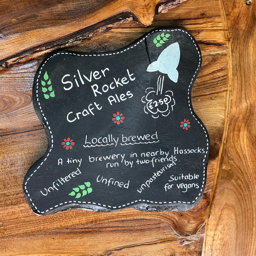 Silver
Rocket
Craft Ales
£2.50
Locally brewed
A tiny brewery in nearby Hassocks,
run by two friends
Unfiltered
Unfined
unpasteurised
Suitable
for vegans